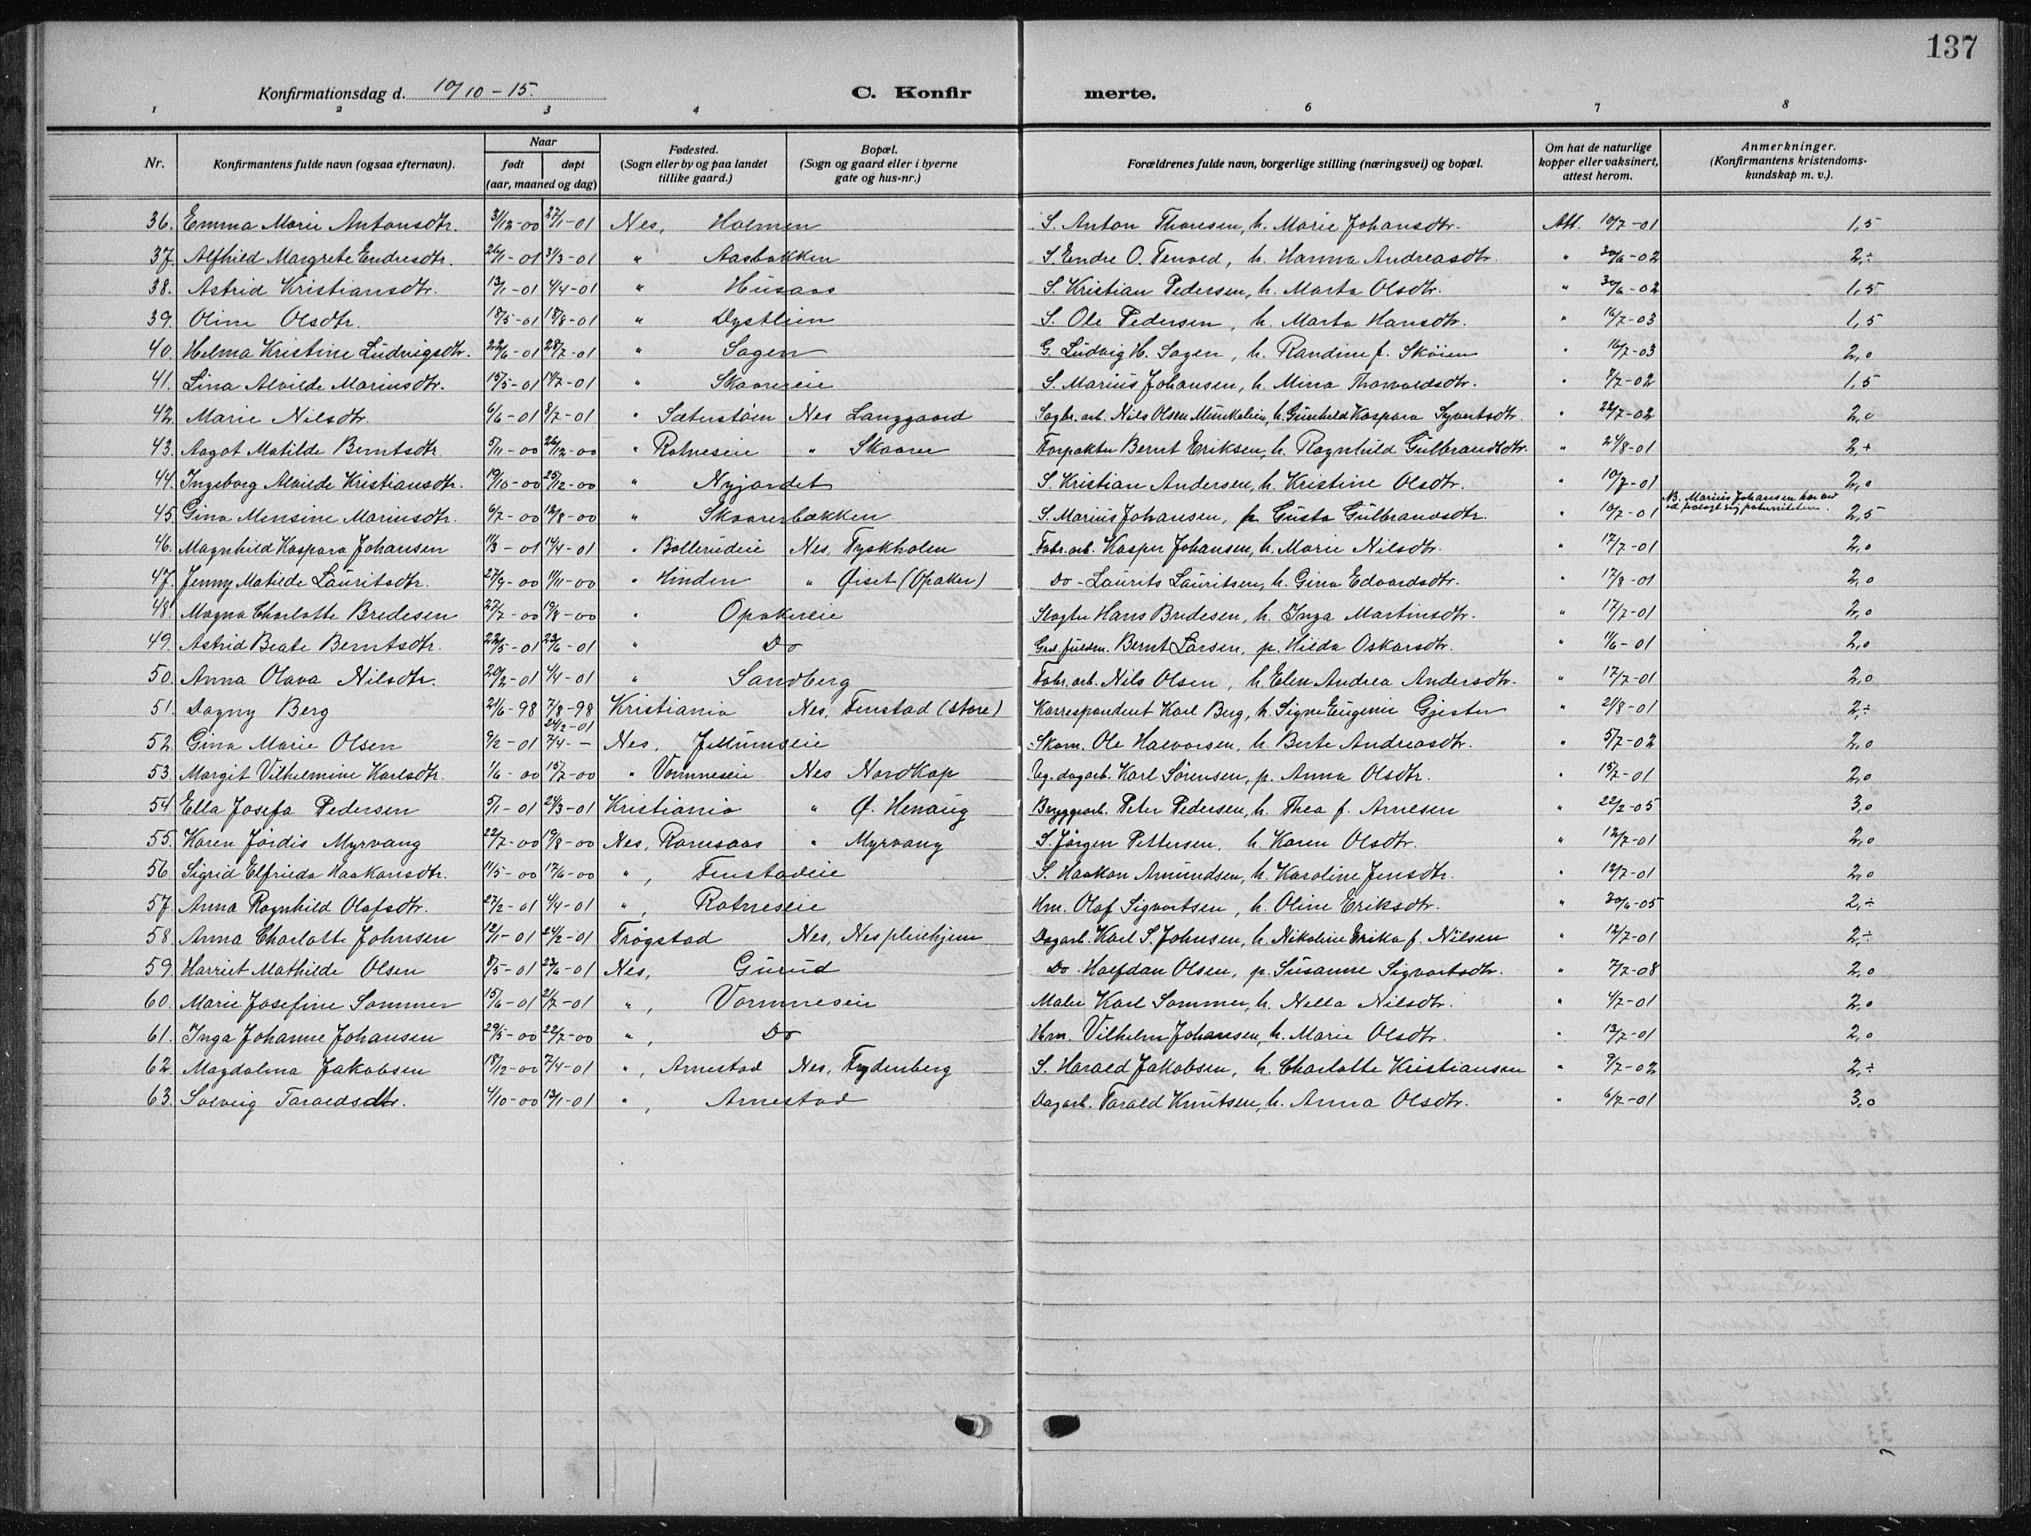 137
Konfirmationsdag d. 10/10-15. C. Konfirmerte.
1 2 3 4 6 7 8
Nr. Konfirmantens fulde navn (ogsaa efternavn). Naar født døpt (aar, maaned og dag) Fødested. (Sogn eller by og paa landet tillike gaard.) Bopæl. (Sogn og gaard eller i byerne gate og hus-nr.) Forældrenes fulde navn, borgerlige stilling (næringsvei) og bopæl. Om hat de naturlige kopper eller vaksinert, attest herom. Anmerkninger. (Konfirmantens kristendoms-kundskap m. v.).
36. Emma Marie Antonsdtr. 31/12-00 27/1-01 Nes, Holmen S. Anton Thoresen, h. Marie Johansdtr. Att. 10/7-01 1,5
37. Alfhild Margrete Endresdtr. 26/1-01 31/3-01 " Aasbakken S. Endre O. Tenold, h. Hanna Andreasdtr. " 30/6-02 2,÷
38. Astrid Kristiansdtr. 13/1-01 4/4-01 " Husaas S. Kristian Pedersen, h. Marta Olsdtr. " 30/6-02 1,5
39. Oline Olsdtr. 18/5-01 18/8-01 " Dystlien S. Ole Pedersen, h. Marta Hansdtr. " 16/7-03 1,5
40. Helma Kristine Ludvigsdtr. 22/6-01 28/7-01 " Sagen G. Ludvig H. Sagen, h. Randine f. Skøien " 16/7-03 2,0
41. Lina Alvilde Mariusdtr. 15/5-01 14/7-01 " Skaareeie S. Marius Johansen, h. Mina Thorvaldsdtr. " 7/7-02 1,5
42. Marie Nilsdtr. 6/6-01 8/7-01 " Sæterstøen Nes Langgaard Sagbr. arb. Nils Olsen Munkebein, h. Gunhild Kaspara Syvertsdtr. " 22/7-02 2,0
43. Aagot Matilde Berntsdtr 5/11-00 26/12-00 " Rotneseie " Skaarer Forpakter Bernt Eriksen, h. Ragnhild Gulbrandsdtr. " 21/8-01 2,÷
44. Ingeborg Alvilde Kristiansdtr. 19/10-00 25/12-00 " Nyjordet S. Kristian Andersen, h. Kristine Olsdtr. " 10/7-01 2,0
45. Gina Mensine Mariusdtr. 6/7-00 12/8-00 " Skaarerbakken S. Marius Johansen, p. Gusta Gulbrandsdtr. " 10/7-01 NB. Marius Johansen har ved ed fralagt sig paterniteten. 2,5
46. Magnhild Kaspara Johansen 11/3-01 14/4-01 " Bollerudeie Nes, Tyskholen Fabr. arb. Kasper Johansen, h. Marie Nilsdtr. " 17/7-01 2,0
47. Jenny Matilde Lauritsdtr. 27/9-00 11/11-00 " Hinden " Øiset (Opaker) Do - Laurits Lauritsen, h. Gina Edvardsdtr. " 17/8-01 2,0
48. Magna Charlotte Bredesen 27/7-00 19/8-00 " Opakereie Slagter Hans Bredesen, h. Inga Martinsdtr. " 17/7-01 2,0
49. Astrid Beate Berntsdtr. 22/5-01 23/6-01 " Do Bernt Larsen, p. Hilda Oskarsdtr. " 11/6-01 2,0
50. Anna Olava Nilsdtr. 20/2-01 4/4-01 " Sandberg Fabr. arb. Nils Olsen, h. Elen Andrea Andersdtr. " 17/7-01 2,0
51. Dagny Berg 21/6-98 7/8-98 Kristiania Nes, Fenstad (store) Korrespondent Karl Berg, h. Signe Eugenie Gjester " 21/8-01 2,÷
52. Gina Marie Olsen 9/2-01 24/2-01 7/4- - Nes, Jellumseie Skom. Ole Halvorsen, h. Berte Andreasdtr. " 5/7-02 2,0
53. Margit Vilhelmine Karlsdtr. 1/6-00 15/7-00 " Vormneseie Nes Nordkap Ug. dagarb. Karl Sørensen, p. Anna Olsdtr. " 15/7-01 2,0
54. Ella Josefa Pedersen 5/1-01 24/3-01 Kristiania " Ø. Henaug Bryggearb. Peter Pedersen, h. Thea f. Arnesen " 22/2-05 3,0
55. Karen Jørdis Myrvang 22/7-00 19/8-00 Nes, Ramsaas " Myrvang S. Jørgen Pettersen, h. Karen Olsdtr. " 12/7-01 2,0
56. Sigrid Elfrieda Haakonsdtr. 11/5-00 17/6-00 " , Fenstadeie S. Haakon Amundsen, h. Karoline Jensdtr. " 12/7-01 2,0
57. Anna Ragnhild Olafsdtr. 27/2-01 4/4-01 " , Rotneseie Hm. Olaf Sigvartsen, h. Oline Eriksdtr. " 30/6-05 2,÷
58. Anna Charlotte Johnsen 12/1-01 24/2-01 Trøgstad Nes, Nes pleiehjem Dagarb. Karl S. Johnsen, h. Nikoline Erika f. Nilsen " 12/7-01 2,÷
59. Harriet Mathilde Olsen 8/5-01 23/6-01 Nes, Gurud Do - Halfdan Olsen, p. Susanne Sigvartsdtr. " 7/7-08 2,0
60. Marie Josefine Sommer 15/6-01 21/7-01 " , Vormneseie Maler Karl Sommer, h. Nella Nilsdtr. " 4/7-01 2,0
61. Inga Johanne Johansen 29/5-00 22/7-00 " , Do Hm. Vilhelm Johansen, h. Marie Olsdtr. " 13/7-01 2,0
62. Magdalena Jakobsen 18/12-00 7/4-01 " , Arnestad Nes, Frydenberg S. Harald Jakobsen, h. Charlotte Kristiansen " 9/7-02 2,÷
63. Solveig Taraldsdtr. 4/10-00 13/1-01 " , Arnestad Dagarb. Tarald Knutsen, h. Anna Olsdtr. " 6/7-01 3,0